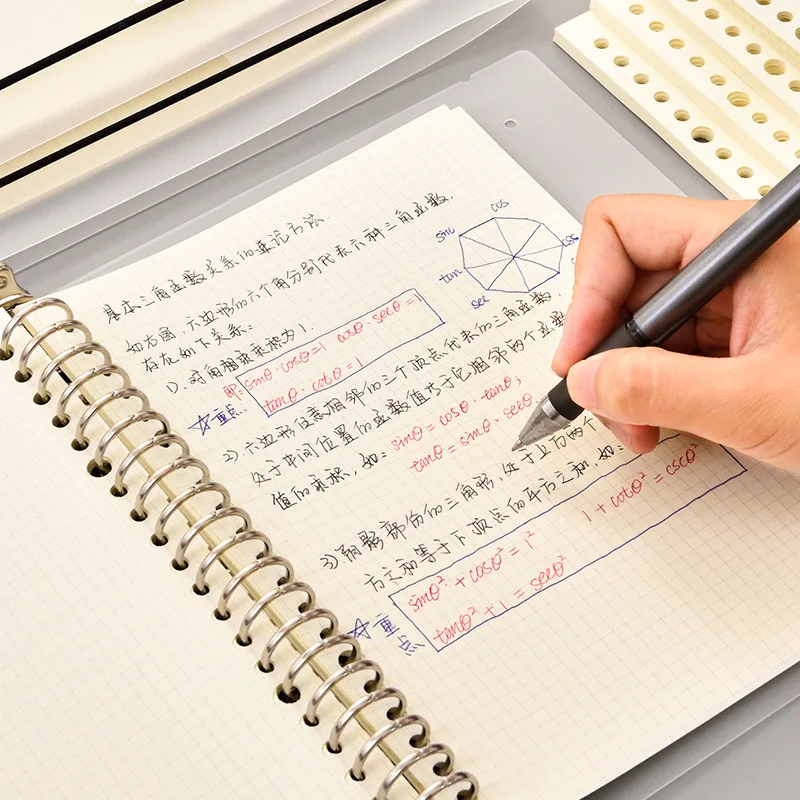 基本三角函数关系的乘记方法.
如右图,六边形的六个角分别代表六种三角函数.
存在如下关系:
1).对角相乘乘积为1.
即: sinθ·cosθ=1 cosθ·secθ=1
tanθ·cotθ=1
☆重点.
2)六边形任意相邻的三个顶点代表的三角函数.
处于中间位置的函数值等于它相邻两个函数
值的乘积,如: sinθ=cosθ·tanθ;
tanθ=sinθ·secθ
3)阴影部份的三角形,处于上方两个
方之和等于下顶点的平方之和,如:
sinθ²+cosθ²=1² 1+cotθ²=cscθ²
tanθ²+1=secθ²
☆重点
cos
sin
cos
tan
sec